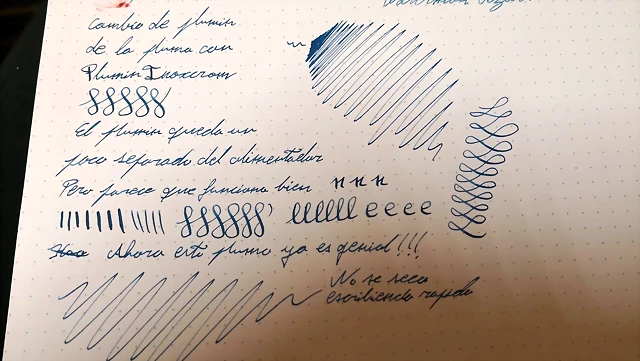 cambio de plumin
de la pluma con
Plumin Inoxcrom
El plumin queda un
poco separado del alimentador
Pero parece que funciona bien n n n
eeee
Ahora esta pluma ya es genial!!!
No se seca
escribiendo rapido